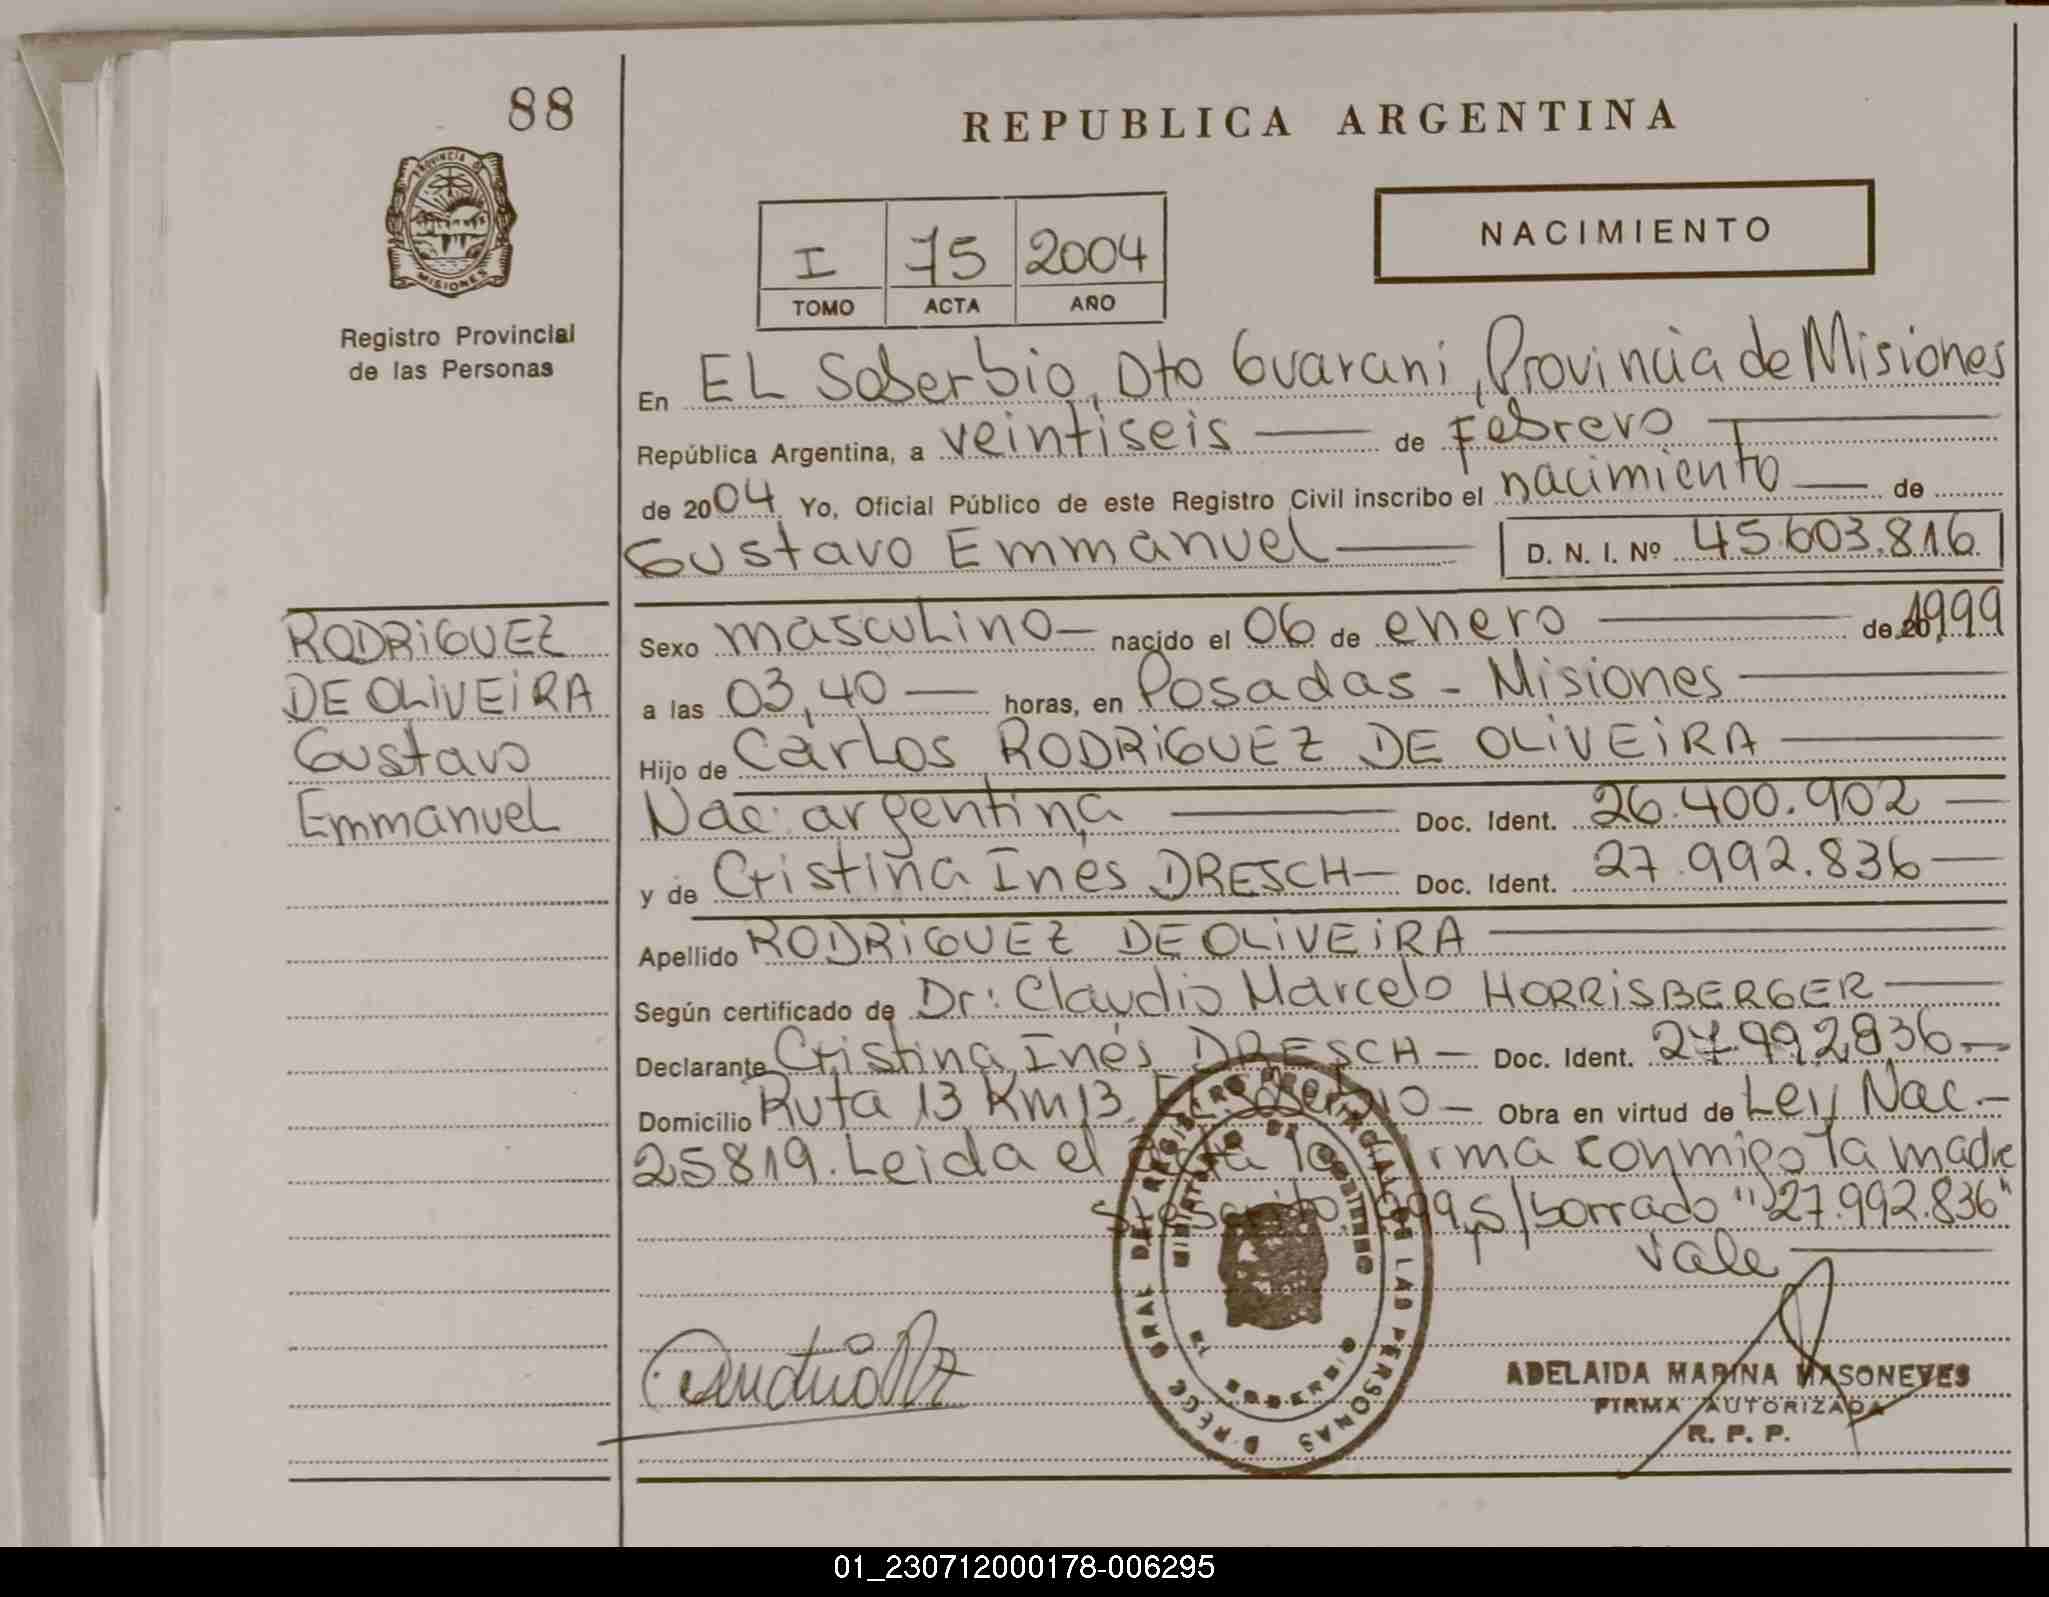 88
REPUBLICA ARGENTINA
PROVINCIA DE
MISIONES
Registro Provincial
de las Personas
I 75 2004
TOMO ACTA AÑO
NACIMIENTO
En EL Soberbio, Dto Guarani, Provincia de Misiones
República Argentina, a veintiseis — de Febrero —
de 2004 Yo, Oficial Público de este Registro Civil inscribo el nacimiento — de
Gustavo Emmanuel — D. N. I. Nº 45.603.816
RODRIGUEZ
DE OLIVEIRA
Gustavo
Emmanuel
Sexo masculino — nacido el 06 de enero — de 1999
a las 03,40 — horas, en Posadas - Misiones —
Hijo de Carlos RODRIGUEZ DE OLIVEIRA —
Nac: argentina — Doc. Ident. 26.400.902 —
y de Cristina Inés DRESCH — Doc. Ident. 27.992.836 —
Apellido RODRIGUEZ DE OLIVEIRA —
Según certificado de Dr: Claudio Marcelo HORRISBERGER —
Declarante Cristina Inés DRESCH — Doc. Ident. 27.992.836 —
Domicilio Ruta 13 Km 13. El Soberbio — Obra en virtud de Ley Nac. —
25819. Leida el acta la firma conmigo la madre
1999, s/borrado "27.992.836"
vale —
REGISTRO PROVINCIAL DE LAS PERSONAS
MINISTERIO DE GOBIERNO
EL SOBERBIO
ADELAIDA MARINA MASONEYES
FIRMA AUTORIZADA
R. P. P.
01_230712000178-006295